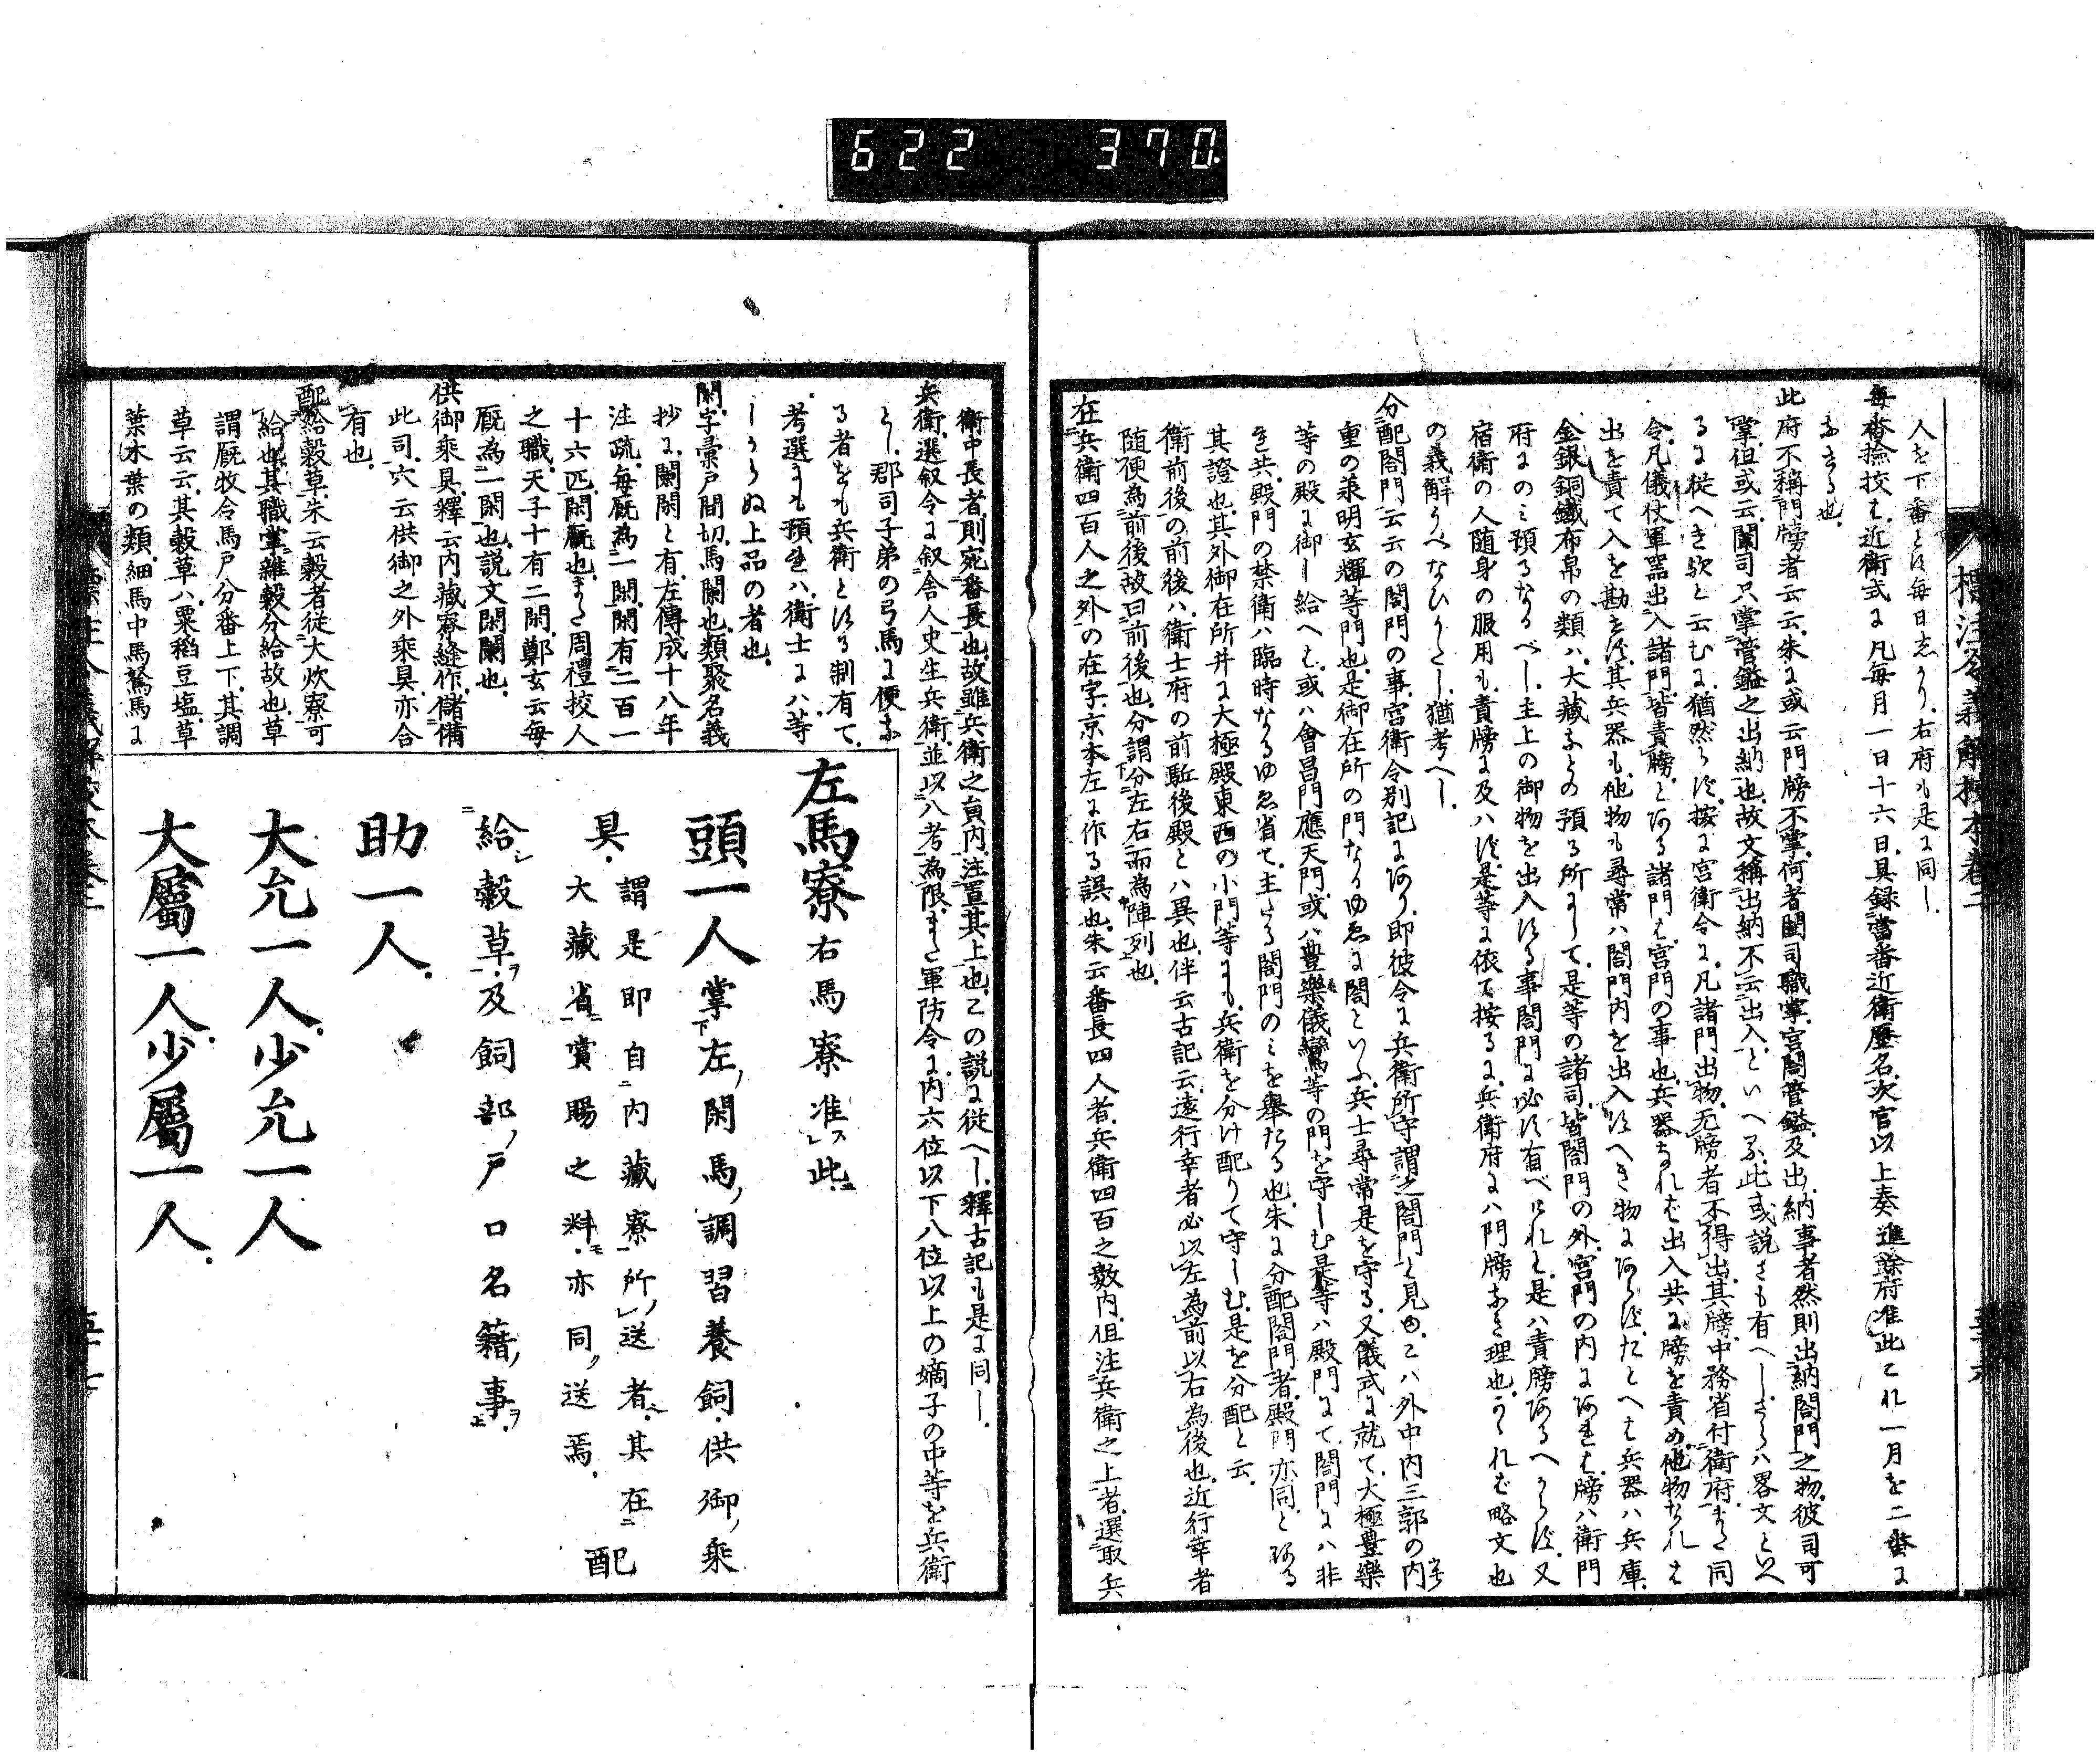 622 370
標注令義解校本卷二
人を下番とは毎日志るり右府も是に同し
毎番撿挍は近衛式に凡毎月一日十六日具録當番近衛歷名次官以上奏進餘府准此これ一月を二番に
するる也
此府不稱門牓者云云朱に或云門牓不掌何者闈司職掌宮閤管鎰及出納事者然則出納閤門之物彼司可
掌但或云闈司只掌管鎰之出納也故文稱出納不云出入といへり此或説さも有へし
るに從へき歟と云むに猶然らす按に宮衛令に凡諸門出物无牓者不得出其牓中務省付衛府また同
令凡儀仗軍器出入諸門皆責牓とある諸門は宮門の事也兵器なれは出入共に牓を責め他物なれは
出を責て入を勘せす其兵器も他物も尋常ハ閤門内を出入すへき物にあらすたとへは兵器ハ兵庫
金銀銅鐵布帛の類ハ大藏なとの預る所にして是等の諸司皆閤門の外宮門の内にあれは牓ハ衛門
府にのミ預るなるへし主上の御物を出入する事閤門に必す有へけれと是ハ責牓あるへからす又
宿衛の人隨身の服用も責牓に及ハす是等に依て按るに兵衛府にハ門牓なき理也かゝれは略文也
の義解うへなひかたし猶考へし
分配閤門云云の閤門の事宮衛令別記にあり即彼令に兵衛所守謂之閤門と見ゆこハ外中内三郭の内
重の兼明玄輝等門也是御在所の門なるゆゑに閤といふ兵士尋常是を守る又儀式に就て大極豊樂
等の殿に御し給へは或ハ會昌門應天門或ハ豊樂儀鸞等の門を守しむ是等ハ殿門にて閤門にハ非
れ共殿門の禁衛ハ臨時なるゆゑ省て主たる閤門のミを擧たる也朱に分配閤門者殿門亦同とある
其證也其外御在所并に大極殿東西の小門等にも兵衛を分け配りて守しむ是を分配と云
衛前後の前後ハ衛士府の前駈後殿とハ異也伴云古記云遠行幸者必以左為前以右為後也近行幸者
隨便為前後故曰前後也分謂分左右而為陣列也
在兵衛四百人之外の在字京本左に作る誤也朱云番長四人者兵衛四百之數内但注兵衛之上者選取兵
衛中長者則宛番長也故雖兵衛之員内注置其上也この説に從へし釋古記も是に同し
兵衛選叙令に叙舎人史生兵衛並以八考為限また軍防令に内六位以下八位以上の嫡子の中等を兵衛
とし郡司子弟の弓馬に便な
る者をも兵衛とする制有て
考選にも預れハ衛士にハ等
しからぬ上品の者也
閑字彙戸間切馬闌也類聚名義
抄に闌閑と有左傳成十八年
注疏毎厩為一閑閑有二百一
十六匹閑厩也また周禮挍人
之職天子十有二閑鄭玄云毎
厩為一閑也説文閑闌也
供御乘具釋云内藏寮縫作儲備
此司穴云供御之外乘具亦合
有也
配給穀草朱云穀者從大炊寮可
給也其職掌雜穀分給故也草
謂厩牧令馬戸分番上下其調
草云云其穀草ハ粟稻豆塩草
葉木葉の類細馬中馬駑馬に
左馬寮右馬寮准此
頭一人掌左閑馬調習養飼供御乘
具謂是即自内藏寮所送者其在
大藏省賞賜之料亦同送焉配
給穀草及飼部戸口名籍事
助一人
大允一人少允一人
大屬一人少屬一人